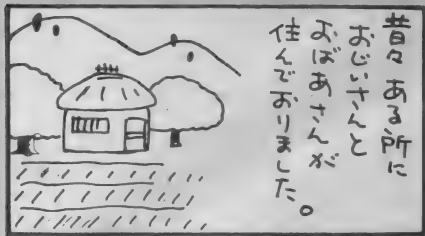 昔々ある所に
おじいさんと
おばあさんが
住んでおりました。